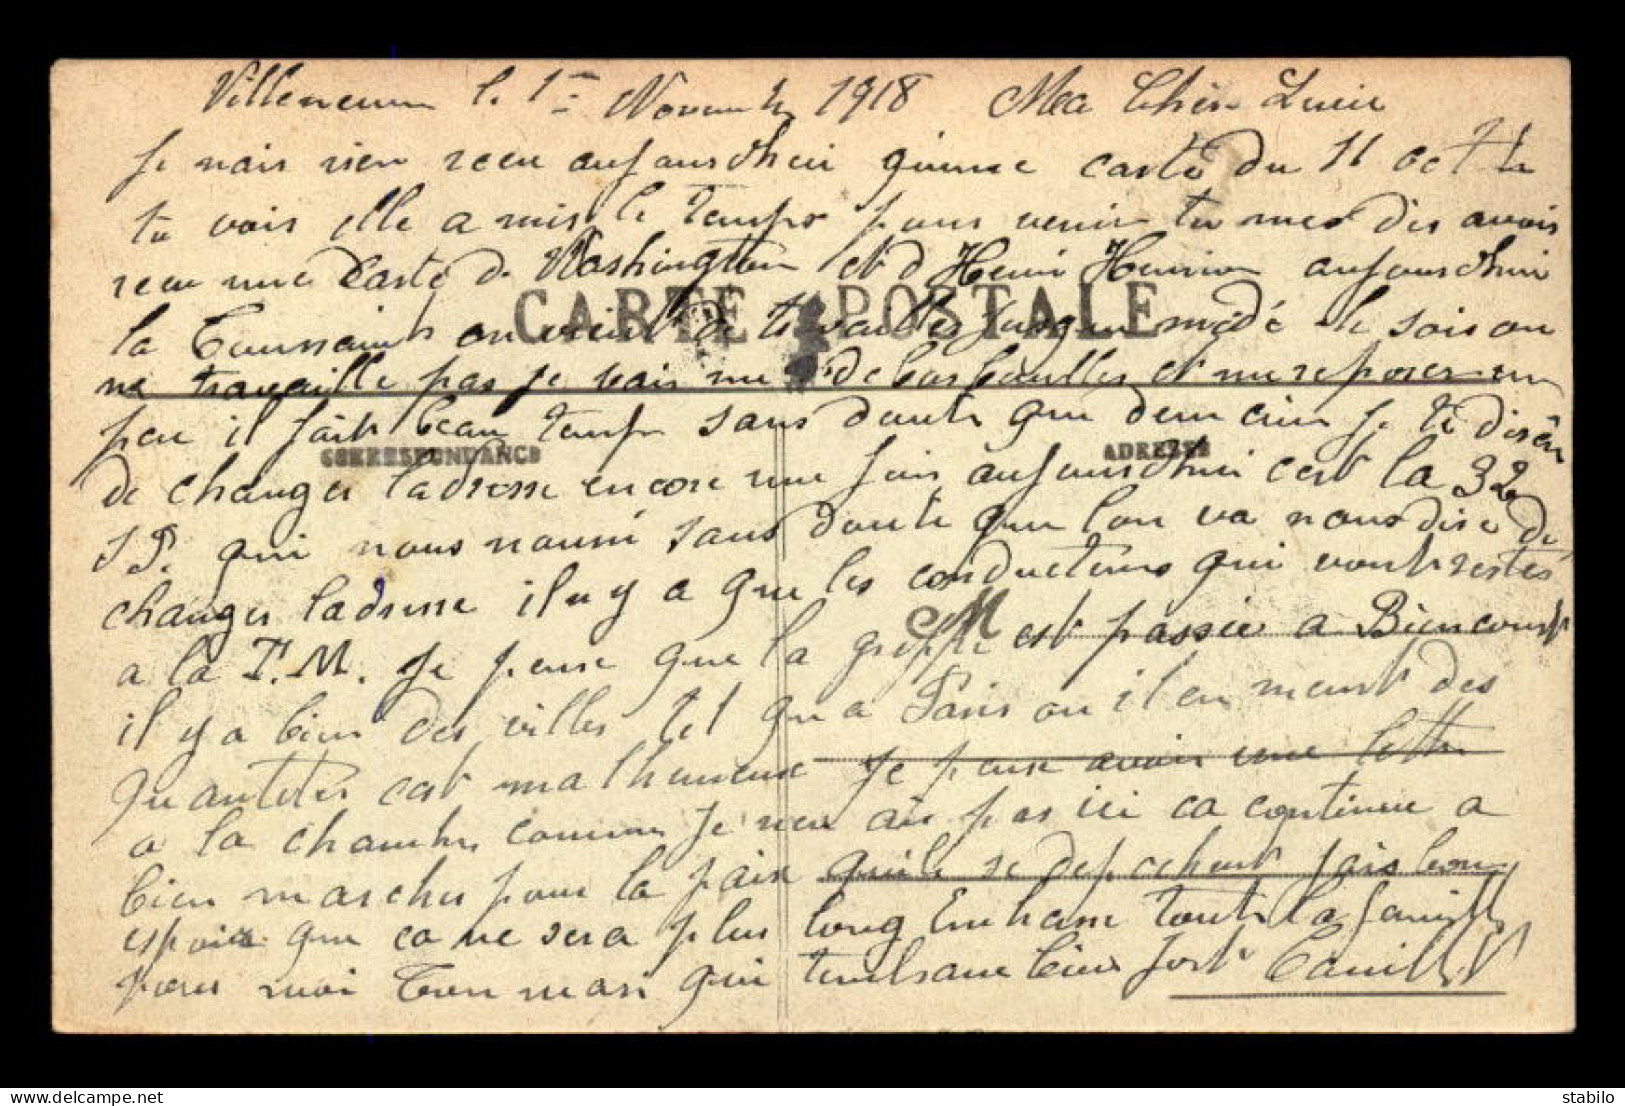 Villeneuve le 1er Novembre 1918 Ma Chère Lucie
Je nais rien recu aujourdhui qu'une carte du 11 oct tu
tu vois elle a mis le temps pour venir tu mes dis avoir
recu une Carte de Washington et d Henri Henrion aujourdhui
la Toussaint on vient de travailler jusqua midi le soir on
CARTE POSTALE
ne travaille pas je vais me debarbouiller et me reposer un
peu il fait beau temps sans doute que demain je te dirai
CORRESPONDANCE ADRESSE
de changer ladresse encore une fois aujourdhui cest la 32
SP. qui nous nouri sans doute que lon va nous dire de
changer ladresse il ny a que les conducteurs qui vont restés
a la T.M. Je pense que la grippe est passée a Biencourt
il y a bien des villes tel qu a Paris ou il en meurt des
quantites cest malheureux Je pense avoir une lettre
a la chambre comme je nen ais pas ici ca continue a
bien marcher pour la paix quils se depechent fais bon
espoire que ca ne sera plus long Embrasse toute la famille
pour moi Ton mari qui tembrasse bien fort Camille